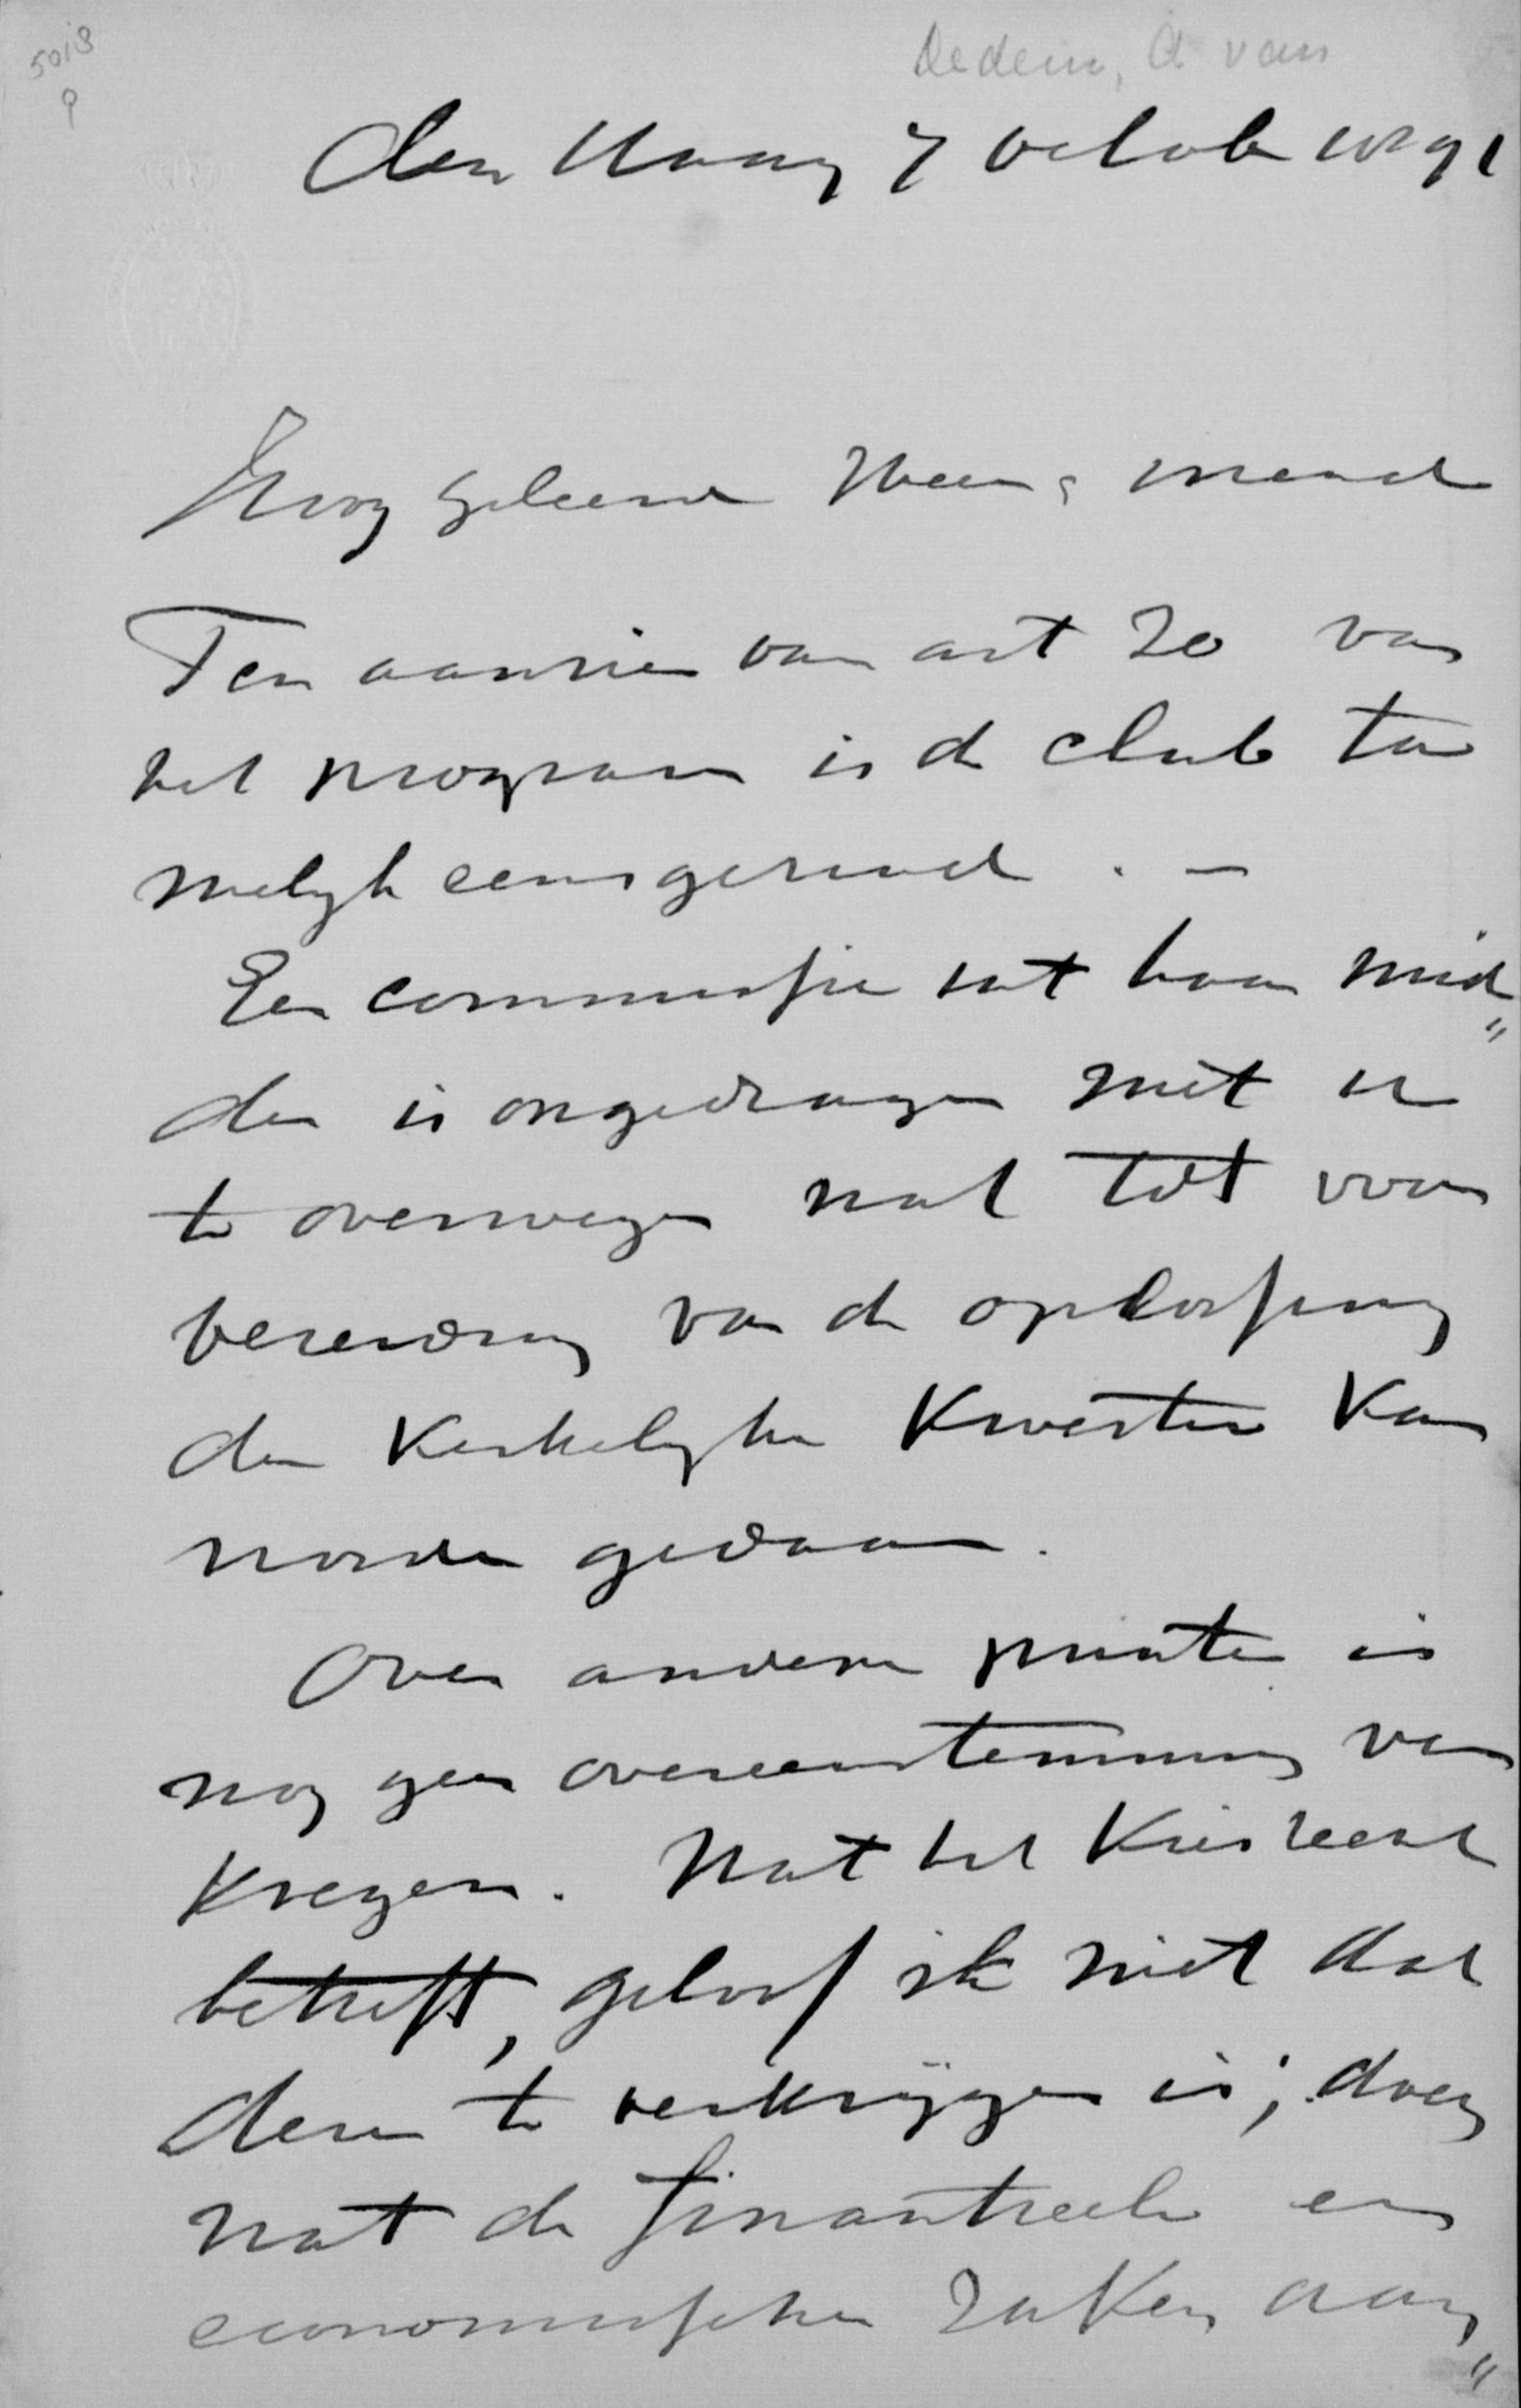 5018
9
Dedem, A van
den Haag 7 october 1891
Hoog geleerde Heer & vriend
Ten aanzien van art 20 van
het program is de club ta
melijk eensgezind . –
Een commissie uit haar mid„
den is opgedragen met u
te overwegen wat tot voor
bereiding van de oplossing
der Kerkelijke Kwestie Kan
worden gedaan.
Over andere punten is
nog geen overeenstemming ver
kregen. Wat het Kiesrecht
betreft, geloof ik niet dat
deze te verkrijgen is; doch
wat de financieele en
economische zaken aan„